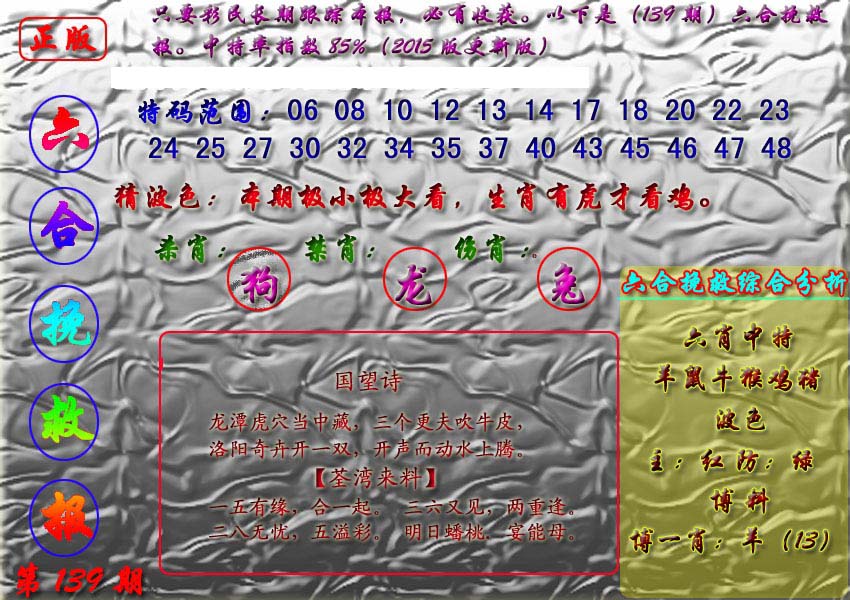 只要彩民长期跟踪本报，必有收获。以下是（139期）六合挽救
报。中特率指数85%（2015版更新版）
正版
六
合
挽
救
报
第139期
特码范围：06 08 10 12 13 14 17 18 20 22 23
24 25 27 30 32 34 35 37 40 43 45 46 47 48
猜波色：本期极小极大看，生肖有虎才看鸡。
杀肖：狗 禁肖：龙 伤肖：兔
国望诗
龙潭虎穴当中藏，三个更夫吹牛皮，
洛阳奇卉开一双，开声而动水上腾。
【荃湾来料】
一五有缘，合一起。 三六又见，两重逢。
二八无忧，五溢彩。 明日蟠桃．宴能母。
六合挽救综合分析
六肖中特
羊鼠牛猴鸡猪
波色
主：红防：绿
博料
博一肖：羊（13）